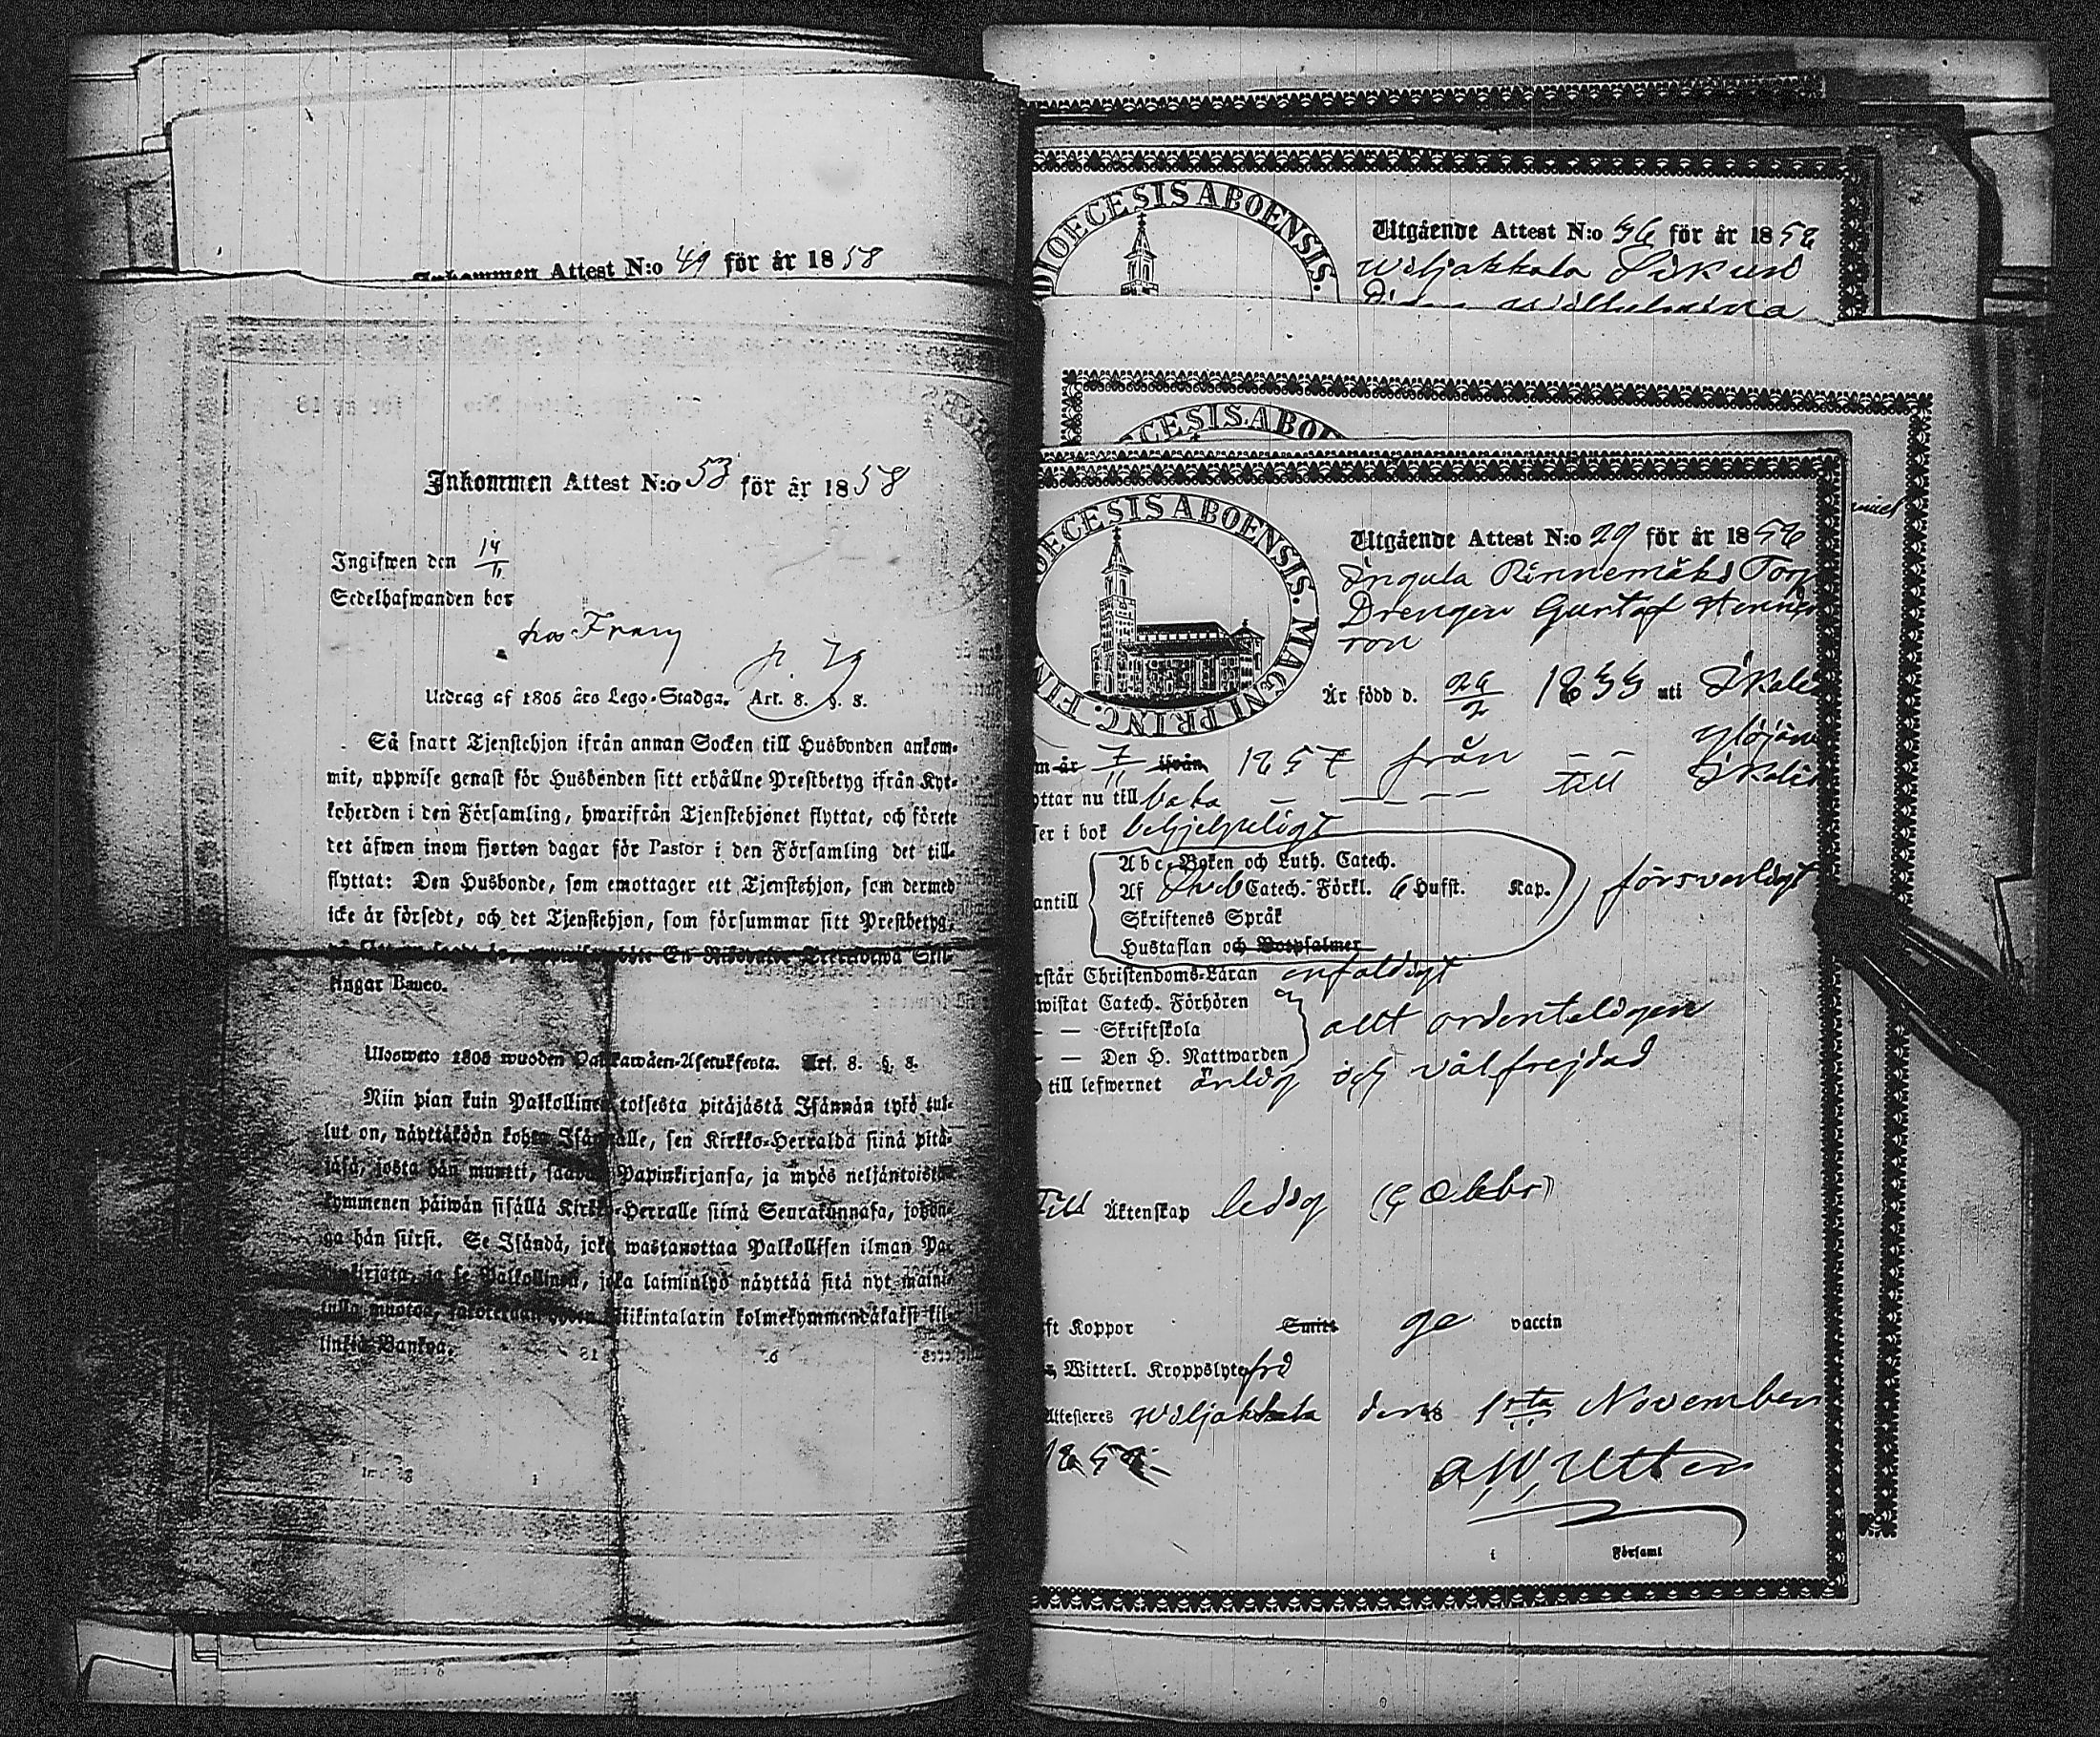 Inkommen Attest N:o 49 för år 1858
Inkommen Attest N:o 53 för år 1858
Ingifwen den 14/11
Sedelhafwanden bor
hos Frany
Utdrag af 1805 års Lego-Stadga. Art. 8. §. 8.
Så snart Tjenstehjon ifrån annan Socken till Husbonden ankom-
mit, uppwise genast för Husbonden sitt erhållne Prestbetyg ifrån Kyr-
koherden i den Församling, hwarifrån Tjenstehjonet flyttat, och förete
det äfwen inom fjorton dagar för Pastor i den Församling det till-
flyttat: Den Husbonde, som emottager ett Tjenstehjon, som dermed
icke är försedt, och det Tjenstehjon, som försummar sitt Prestbetyg,
En Riksdaler Trettiotwå Skil-
lingar Banco.
Ulosweto 1805 wuoden Palkawäen-Asetuksesta. Art. 8. §. 8.
Niin pian kuin Palkollinen toisesta pitäjästä Isännän tykö tul-
lut on, näyttäköön kohta Isännälle, sen Kirkko-Herralda siinä pitä-
jäsä, josta hän muutti, saadun Papinkirjansa, ja myös neljäntoista-
kymmenen päiwän sisällä Kirkko-Herralle siinä Seurakunnasa, johon-
ga hän siirsi. Se Isändä, joka wastanottaa Palkollisen ilman Pa-
pinkirjata, ja se Palkollinen, joka laiminlyö näyttää sitä nyt maini-
tulla muotoa, Riikintalarin kolmekymmendäkaksi kil-
linkiä Bankoa.
DIOECESIS ABOENSIS.
Utgående Attest N:o 36 för år 1858
Wiljakkala
Wilhelmina
CESIS ABOE
OECESIS ABOENSIS. MAGNI PRINC. FIN
Utgående Attest N:o 29 för år 1858
Ingula Rinnemäki Torp
Drengen Gustaf
son
Är född d. 1833 uti Ikalis
Ylöjär
m år 7/11 ifrån 1857 från
yttar nu till baka till Ikalis
ser i bok behjelpeligt
Abc-Boken och Luth. Catech.
antill Af Catech. Förkl. 6 Hufst. Kap. försvarligt
Skriftenes Språk
Hustaflan och Botpsalmer
rstår Christendoms-Läran enfaldigt
wistat Catech. Förhören
— — Skriftskola allt ordenteligen
— — Den H. Nattwarden
till lefwernet ärlig och välfrejdad
Till Äktenskap ledig
ft Koppor Smitt ge vaccin
Witterl. Kroppslyte fri
Attesteres Wiljakkala den 18 1sta November
1858.
A W Utter
i Församl